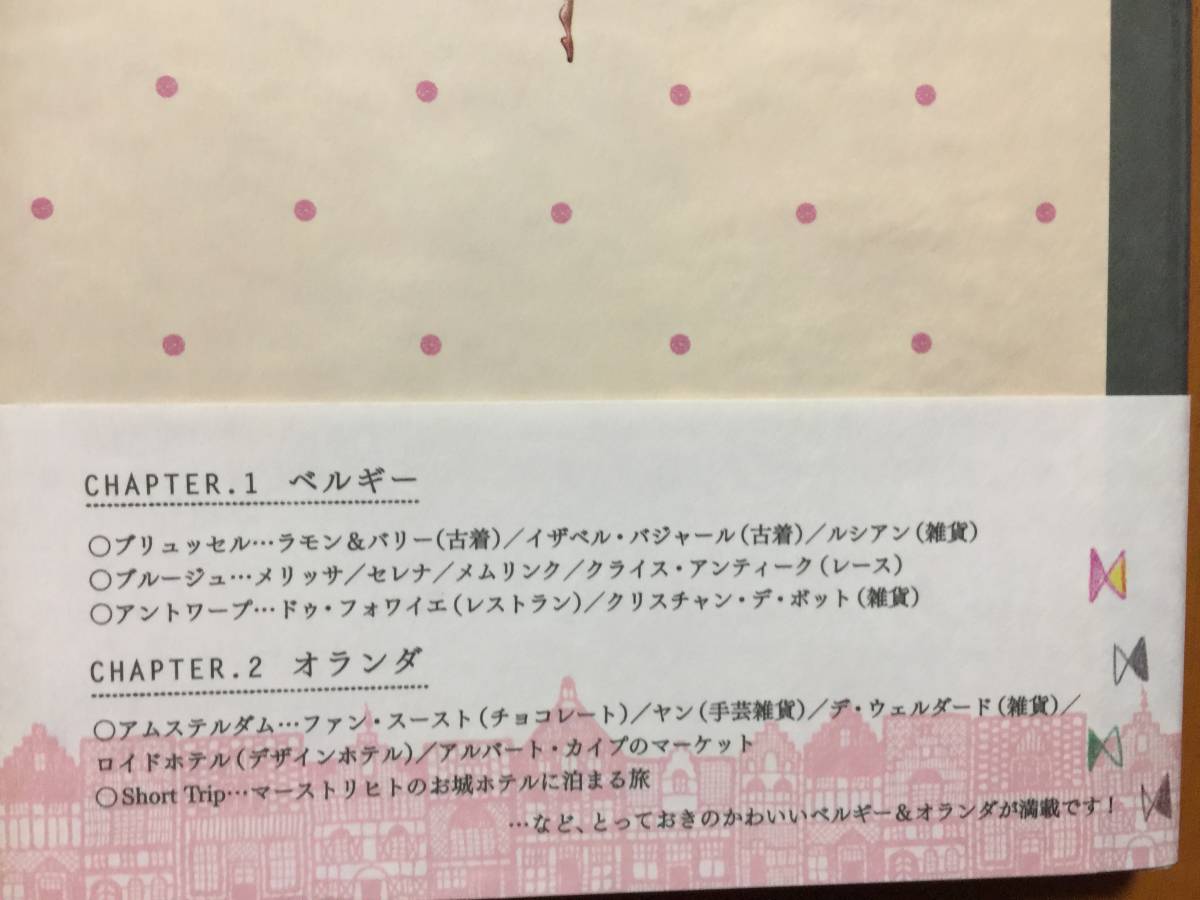 CHAPTER.1 ベルギー
○ブリュッセル…ラモン＆バリー(古着)／イザベル・バジャール(古着)／ルシアン(雑貨)
○ブルージュ…メリッサ／セレナ／メムリンク／クライス・アンティーク(レース)
○アントワープ…ドゥ・フォワイエ(レストラン)／クリスチャン・デ・ボット(雑貨)
CHAPTER.2 オランダ
○アムステルダム…ファン・スースト(チョコレート)／ヤン(手芸雑貨)／デ・ウェルダード(雑貨)／
ロイドホテル(デザインホテル)／アルバート・カイプのマーケット
○Short Trip…マーストリヒトのお城ホテルに泊まる旅
…など、とっておきのかわいいベルギー＆オランダが満載です！